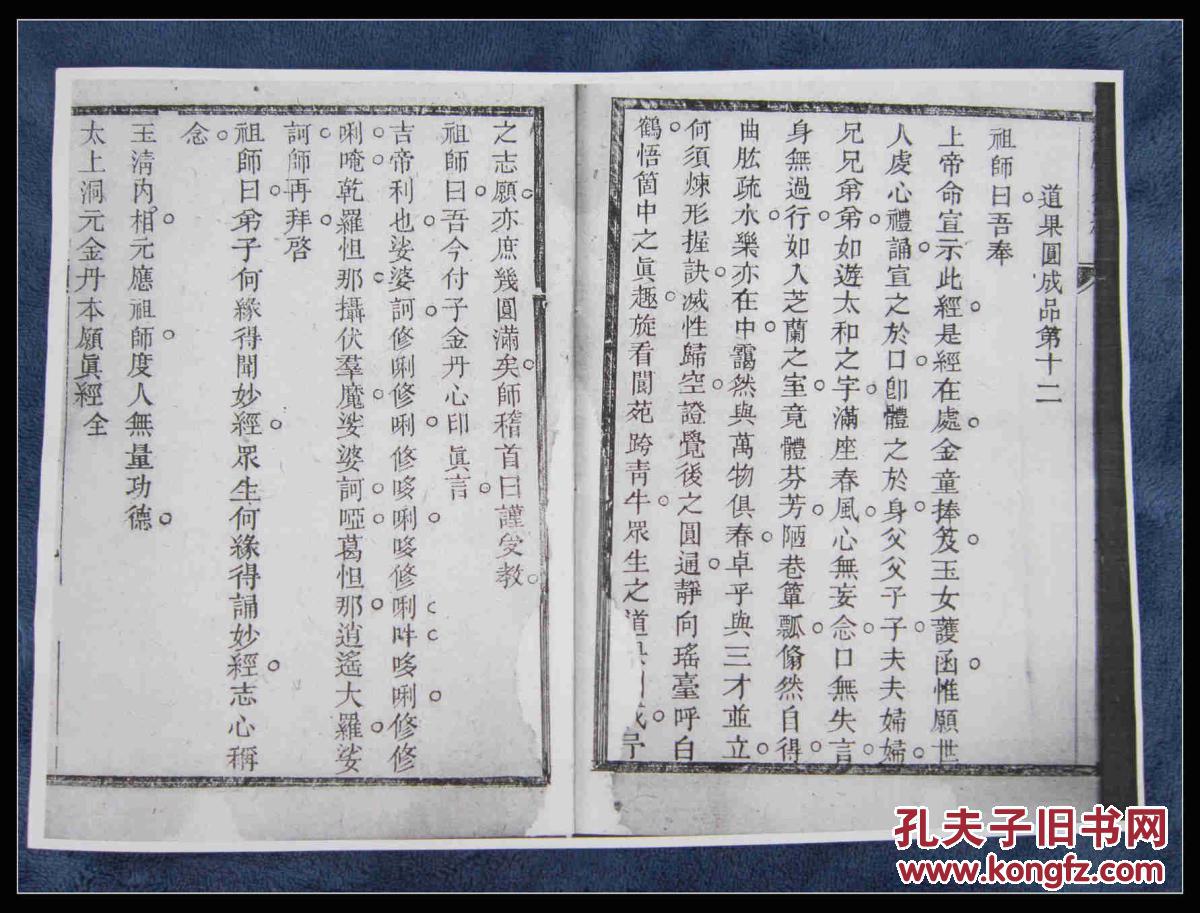 道果圓成品第十二
祖師曰吾奉
上帝命宣示此經是經在處金童捧笈玉女護函惟願世
人虔心禮誦宣之於口卽體之於身父父子子夫夫婦婦
兄兄弟弟如遊太和之宇滿座春風心無妄念口無失言
身無過行如入芝蘭之室竟體芬芳陋巷簞瓢翛然自得
曲肱疏水樂亦在中靄然與萬物俱春卓乎與三才並立
何須煉形握訣滅性歸空證覺後之圓通靜向瑤臺呼白
鶴悟箇中之眞趣旋看閬苑跨靑牛眾生之道
之志願亦庶幾圓滿矣師稽首曰謹受教
祖師曰吾今付子金丹心印眞言
吉帝利也娑婆訶修唎修唎修哆唎哆修唎吽哆唎修修
唎唵乾羅怛那攝伏羣魔娑婆訶啞葛怛那逍遙大羅娑
訶師再拜啓
祖師曰弟子何緣得聞妙經眾生何緣得誦妙經志心稱
念
玉淸內相元應祖師度人無量功德
太上洞元金丹本願眞經全
孔夫子旧书网
www.kongfz.com